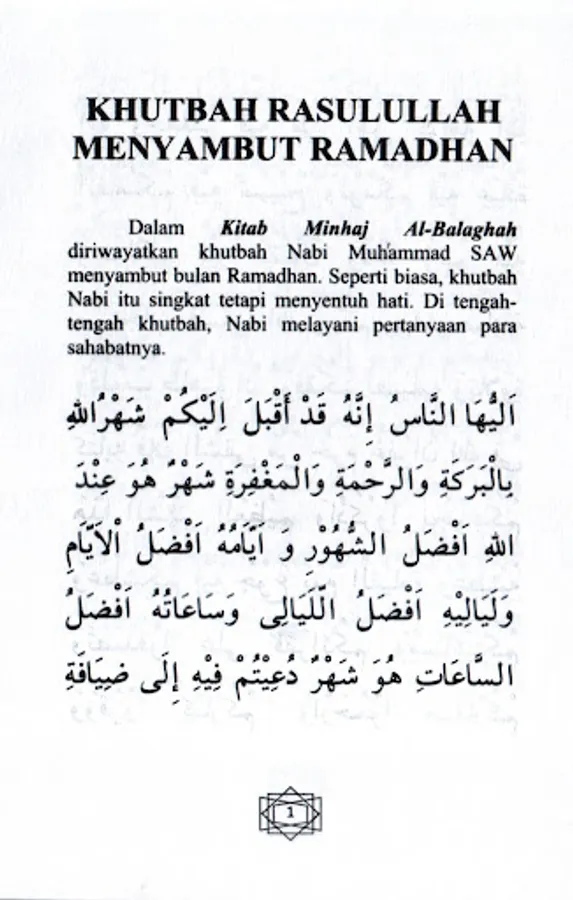 KHUTBAH RASULULLAH
MENYAMBUT RAMADHAN
Dalam Kitab Minhaj Al-Balaghah
diriwayatkan khutbah Nabi Muhammad SAW
menyambut bulan Ramadhan. Seperti biasa, khutbah
Nabi itu singkat tetapi menyentuh hati. Di tengah-
tengah khutbah, Nabi melayani pertanyaan para
sahabatnya.
اَيُّهَا النَّاسُ إِنَّهُ قَدْ أَقْبَلَ اِلَيْكُمْ شَهْرُ اللهِ
بِالْبَرَكَةِ وَالرَّحْمَةِ وَالْمَغْفِرَةِ شَهْرٌ هُوَ عِنْدَ
اللهِ اَفْضَلُ الشُّهُوْرِ وَ اَيَّامُهُ اَفْضَلُ اْلاَيَّامِ
وَلَيَالِيْهِ اَفْضَلُ الَّليَالِى وَسَاعَاتُهُ اَفْضَلُ
السَّاعَاتِ هُوَ شَهْرٌ دُعِيْتُمْ فِيْهِ إِلَى ضِيَافَةِ
1